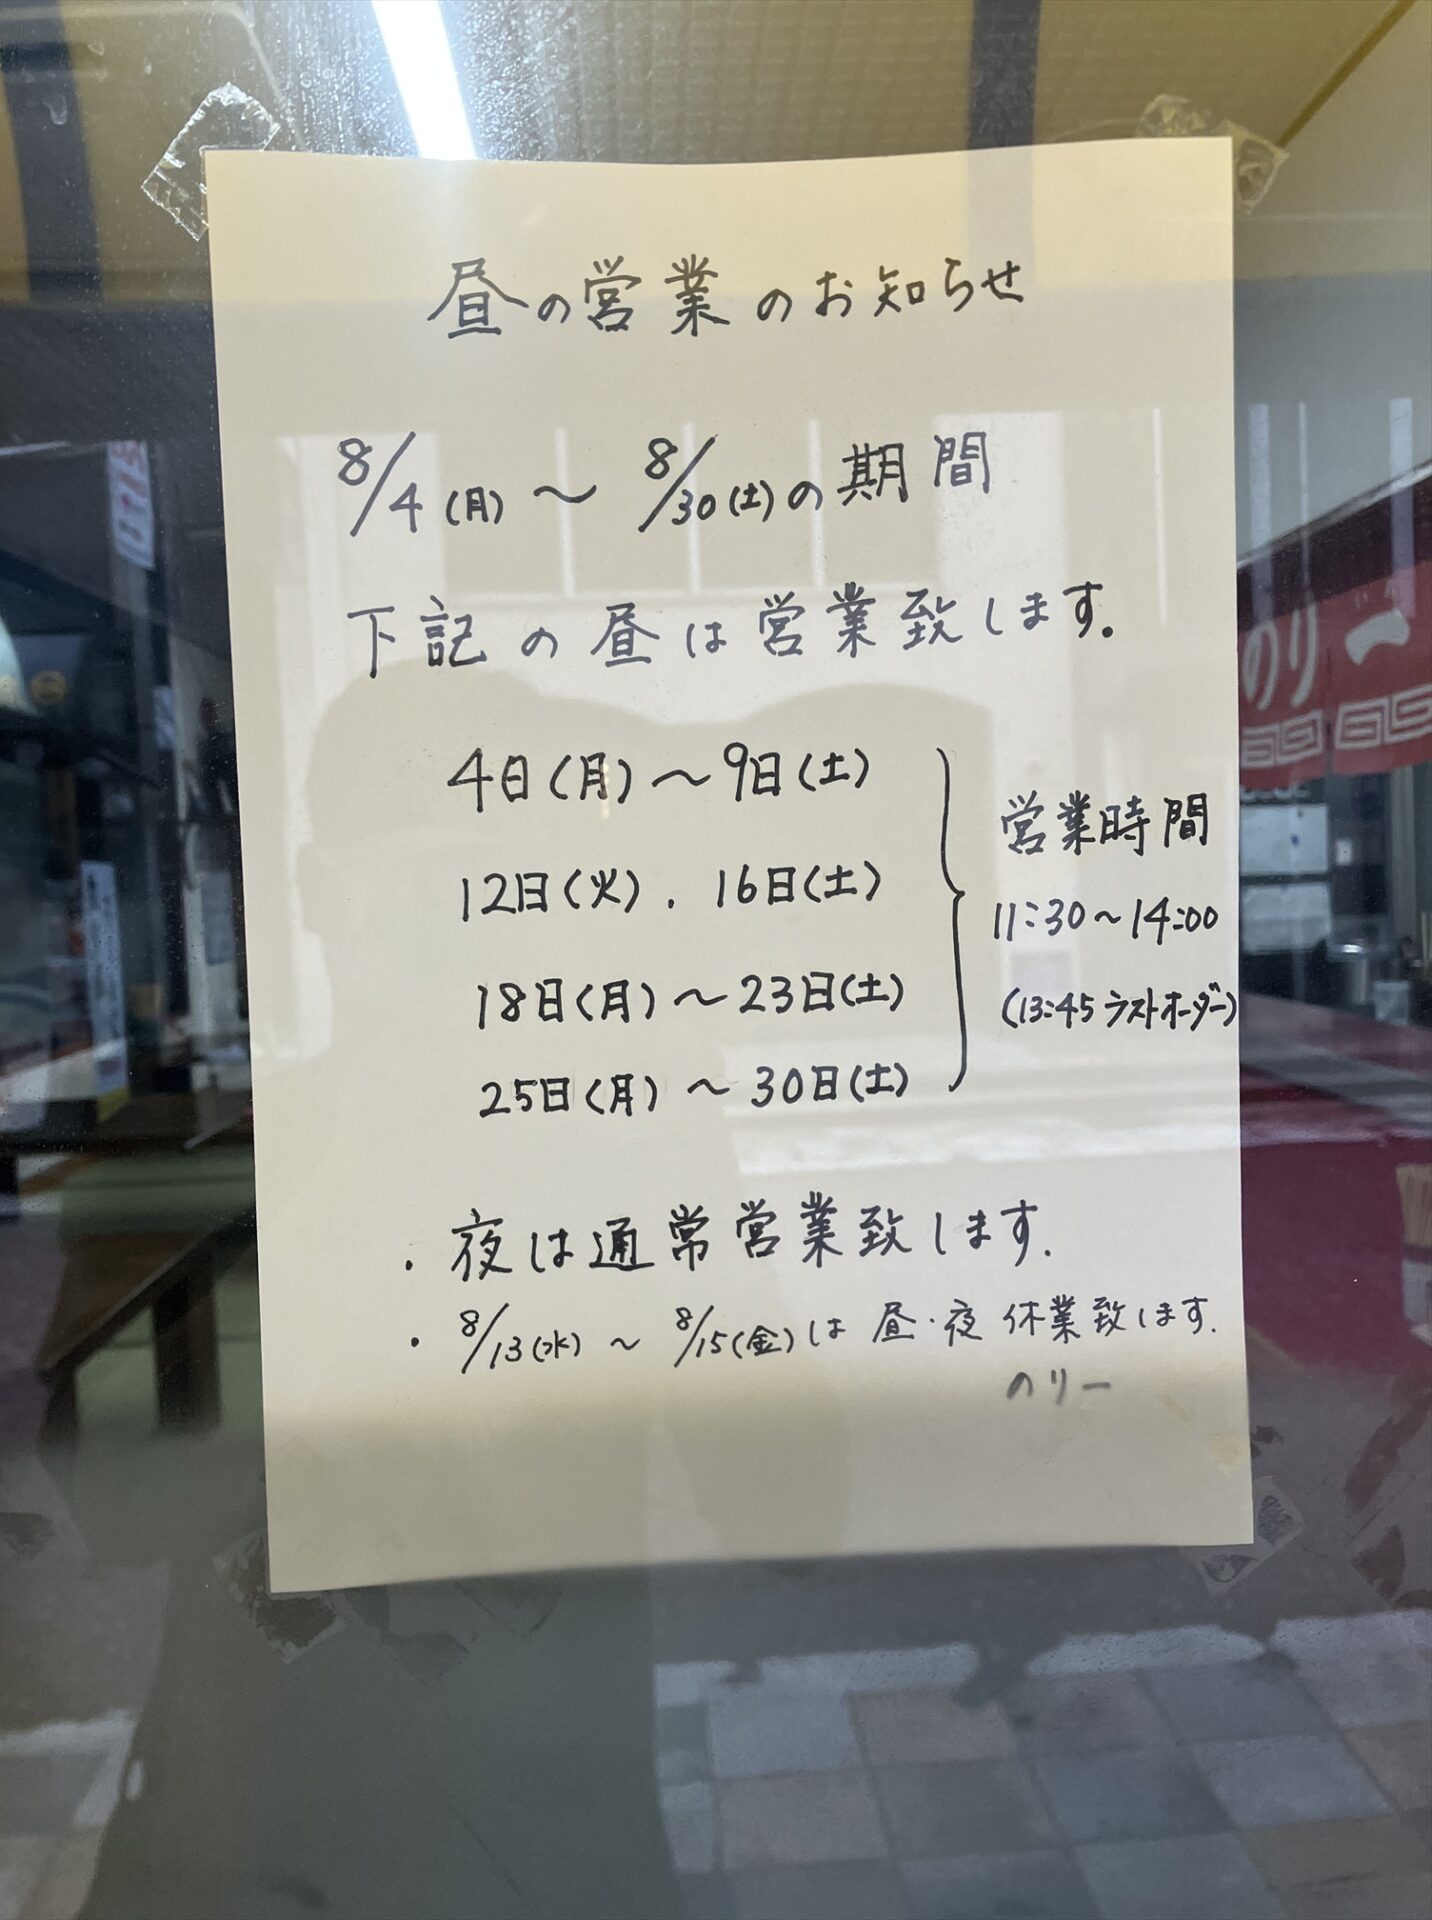 昼の営業のお知らせ
8/4(月)～8/30(土)の期間
下記の昼は営業致します。
4日(月)～9日(土)
12日(火). 16日(土)
18日(月)～23日(土)
25日(月)～30日(土)
営業時間
11:30～14:00
(13:45ラストオーダー)
・夜は通常営業致します.
・8/13(水)～8/15(金)は昼・夜休業致します.
のりー
のりー